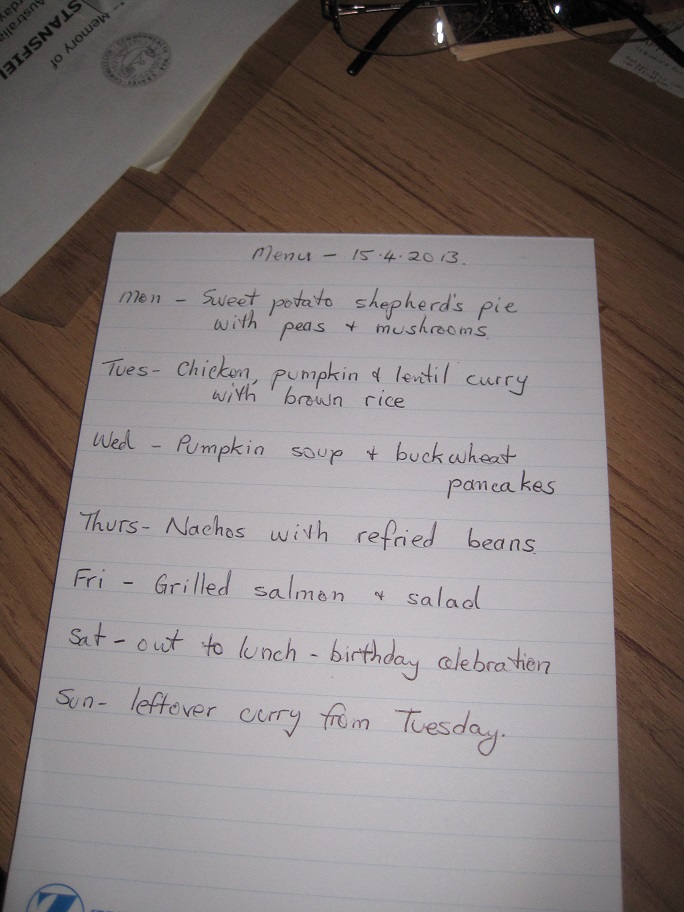 Memory of
Australia
STANSFIEL
Menu - 15.4.2013.
Mon - Sweet potato shepherd's pie
with peas & mushrooms.
Tues- Chicken, pumpkin & lentil curry
with brown rice
Wed - Pumpkin soup & buckwheat
pancakes
Thurs- Nachos with refried beans.
Fri - Grilled salmon & salad
Sat - out to lunch - birthday celebration
Sun- leftover curry from Tuesday.
Z